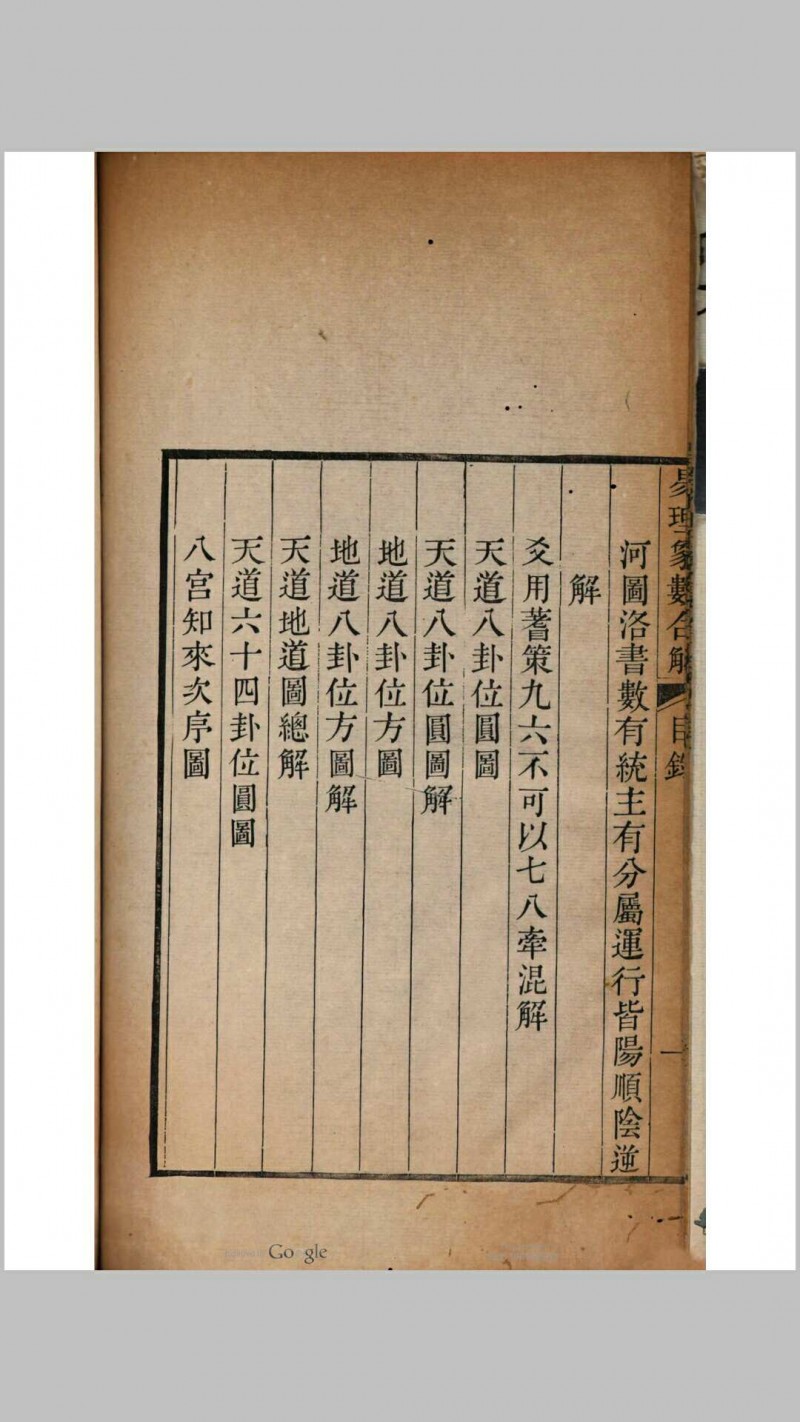 易理象數合解
目錄
一
河圖洛書數有統主有分屬運行皆陽順陰逆
解
爻用蓍策九六不可以七八牽混解
天道八卦位圓圖
天道八卦位圓圖解
地道八卦位方圖
地道八卦位方圖解
天道地道圖總解
天道六十四卦位圓圖
八宮知來次序圖
Google